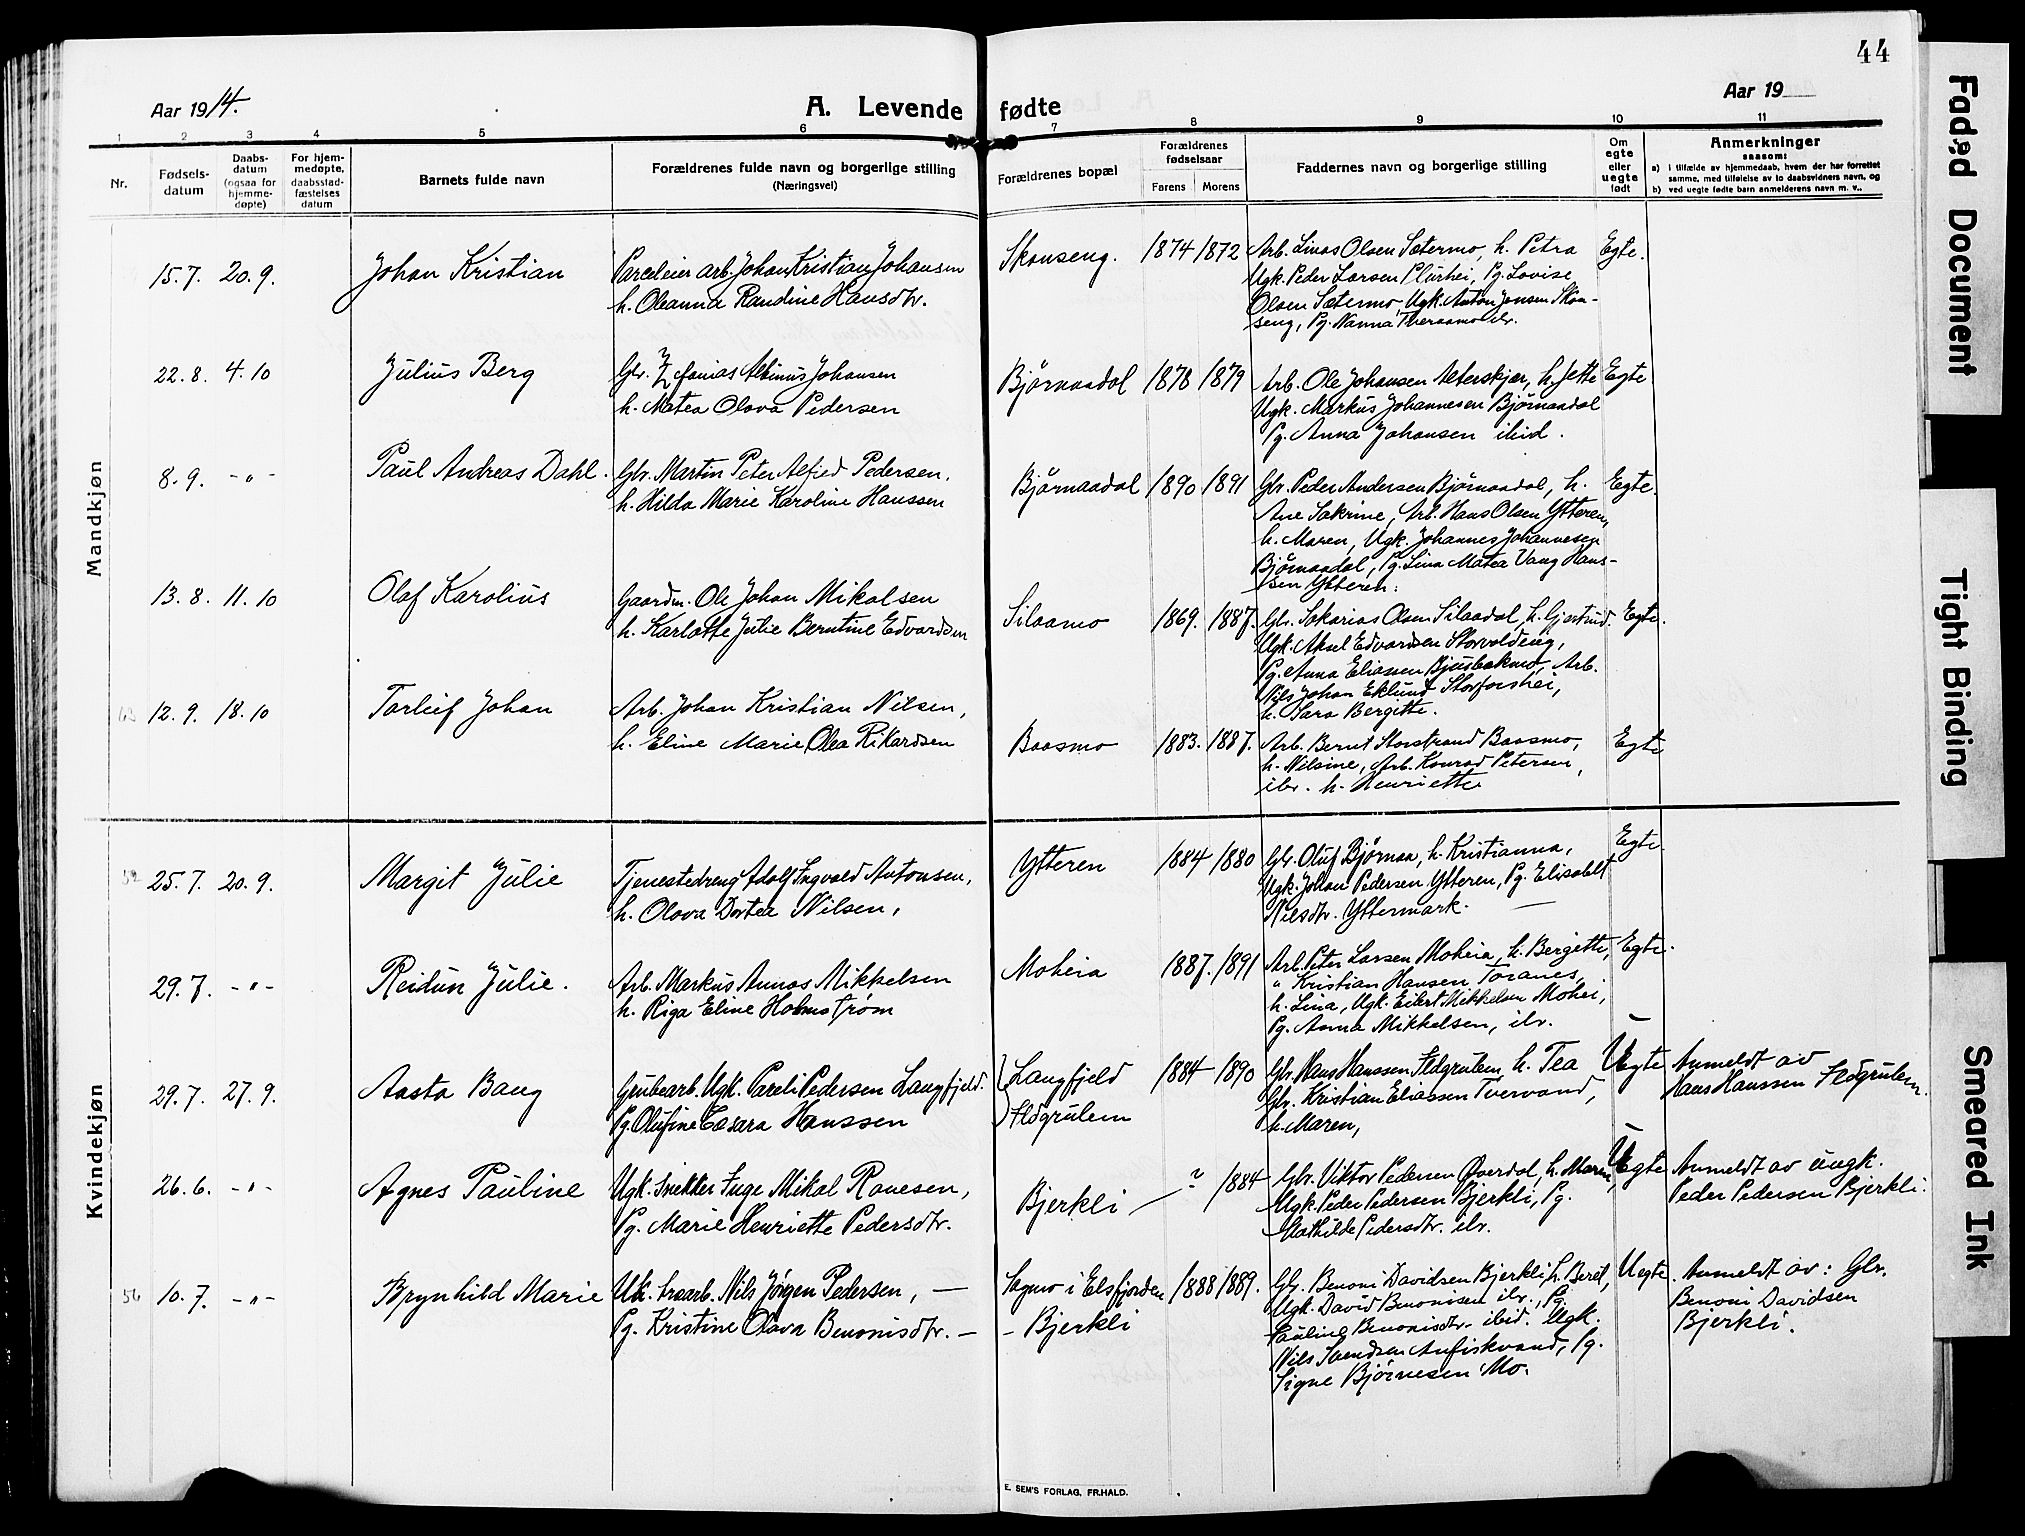 44
Aar 1914.
A. Levende fødte
Aar 19
1 2 3 4 5 6 7 8 9 10 11
Nr.
Fødsels-
datum
Daabs-
datum
(ogsaa for
hjemme-
døpte)
For hjem-
medøpte,
daabsstad-
fæstelses
datum
Barnets fulde navn
Forældrenes fulde navn og borgerlige stilling
(Næringsvei)
Forældrenes bopæl
Forældrenes
fødselsaar
Farens Morens
Faddernes navn og borgerlige stilling
Om
egte
eller
uegte
født
Anmerkninger
saasom:
a) i tilfælde av hjemmedaab, hvem der har forrettet
samme, med tilføielse av to daabsvidners navn, og
b) ved uegte fødte barn anmelderens navn m. v..
Mandkjøn
15.7. 20.9. Johan Kristian
Parceleier arb. Johan Kristian Johansen
h. Oleanna Randine Hansdtr.
Skonseng. 1874 1872
Arb. Linas Olsen Sætermo, h. Petra
Ugk. Peder Larsen Plurhei, Pg. Lovise
Olsen Sætermo, Ugk. Anton Jensen Skon-
seng, Pg. Nanna
Egte.
22.8. 4.10 Julius Berg
Gbr. Zefanias Albinus Johansen
h. Matea Olava Pedersen
Bjørnaadal 1878 1879
Arb. Ole Johansen Alterskjær, h. Jette
Ugk. Markus Johannesen Bjørnaadal
Pg. Anna Johansen ibid.
Egte
8.9. -"- Paul Andreas Dahl.
Gbr. Martin Peter Alfred Pedersen,
h. Hilda Marie Karoline Hanssen
Bjørnaadal 1890 1891
Gbr. Peder Andersen Bjørnaadal, h.
Ane Sakrine, Arb. Hans Olsen Ytteren,
h. Maren, Ugk. Johannes Johannesen
Bjørnaadal, Pg. Lina Matea Vang Hans-
sen Ytteren.
Egte.
13.8. 11.10 Olaf Karolius
Gaardm. Ole Johan Mikalsen
h. Karlotte Julie Berntine Edvardsen
Silaamo 1869. 1887.
Gbr. Sakarias Olsen Silaadal, h. Gjertrud.
Ugk. Aksel Edvardsen Storvoldeng,
Pg. Anna Eliassen Bjusbækmo, Arb.
Nils Johan Eklund Storforshei,
h. Sara Bergitte.
Egte.
63 12.9. 18.10 Torleif Johan
Arb. Johan Kristian Nilsen,
h. Eline Marie Olea Rikardsen
Baasmo 1883. 1887.
Arb. Bernt Storstrand Baasmo,
h. Nilsine, Arb. Konrad Petersen,
ibr. h. Henriette
Egte
Kvindekjøn
52 25.7. 20.9. Margit Julie
Tjenestedreng Adolf Ingvald Antonsen,
h. Olava Dortea Nilsen,
Ytteren 1884 1880
Gbr. Oluf Bjørnaa, h. Kristianna,
Ugk. Johan Pedersen Ytteren, Pg. Elisabet
Nilsdtr. Yttermark. —
Egte
29.7. -"- Reidun Julie.
Arb. Markus Annas Mikkelsen
h. Riga Eline Holmstrøm
Moheia 1887. 1891
Arb. Peter Larsen Moheia, h. Bergitte,
" Kristian Hansen Toranes,
h. Lina, Ugk. Eilert Mikkelsen Mohei,
Pg. Anna Mikkelsen, ibr.
Egte.
29.7. 27.9. Aasta Bang
Grubearb. Ugk. Pareli Pedersen Langfjeld.
Pg. Olufine Cæsara Hanssen
Langfjeld
Flogrulem
1884 1890
Gbr. Hans Hanssen Flogrulem, h. Tea
Gbr. Kristian Eliassen Tvervand,
h. Maren,
Uegte
Anmeldt av
Hans Hanssen Flogrulem.
26.6. -"- Agnes Pauline
Ugk. snekker Inge Mikal Ranesen,
Pg. Marie Henriette Pedersdtr.
Bjerkli — ? 1884
Gbr. Viktor Pedersen Øverdal, h. Maren,
Ugk. Peder Pedersen Bjerkli, Pg.
Mathilde Pedersdtr. ibr.
Uegte
Anmeldt av ungk.
Peder Pedersen Bjerkli.
56 10.7. -"- Brynhild Marie
Uk. Nils Jørgen Pedersen, —
Pg. Kristine Olava Benonisdtr. —
i Elsfjorden
- Bjerkli
1888 1889.
Gbr. Benoni Davidsen Bjerkli h. Beret,
Ugk. David Benonisen ibr., Pg.
Pauline Benonisdtr. ibid. Ugk.
Nils Svendsen Aufiskvand, Pg.
Signe Bjørnesen Mo.
Uegte.
Anmeldt av: Gbr.
Benoni Davidsen
Bjerkli.
E. SEM'S FORLAG, FR.HALD.
Faded Document
Tight Binding
Smeared Ink